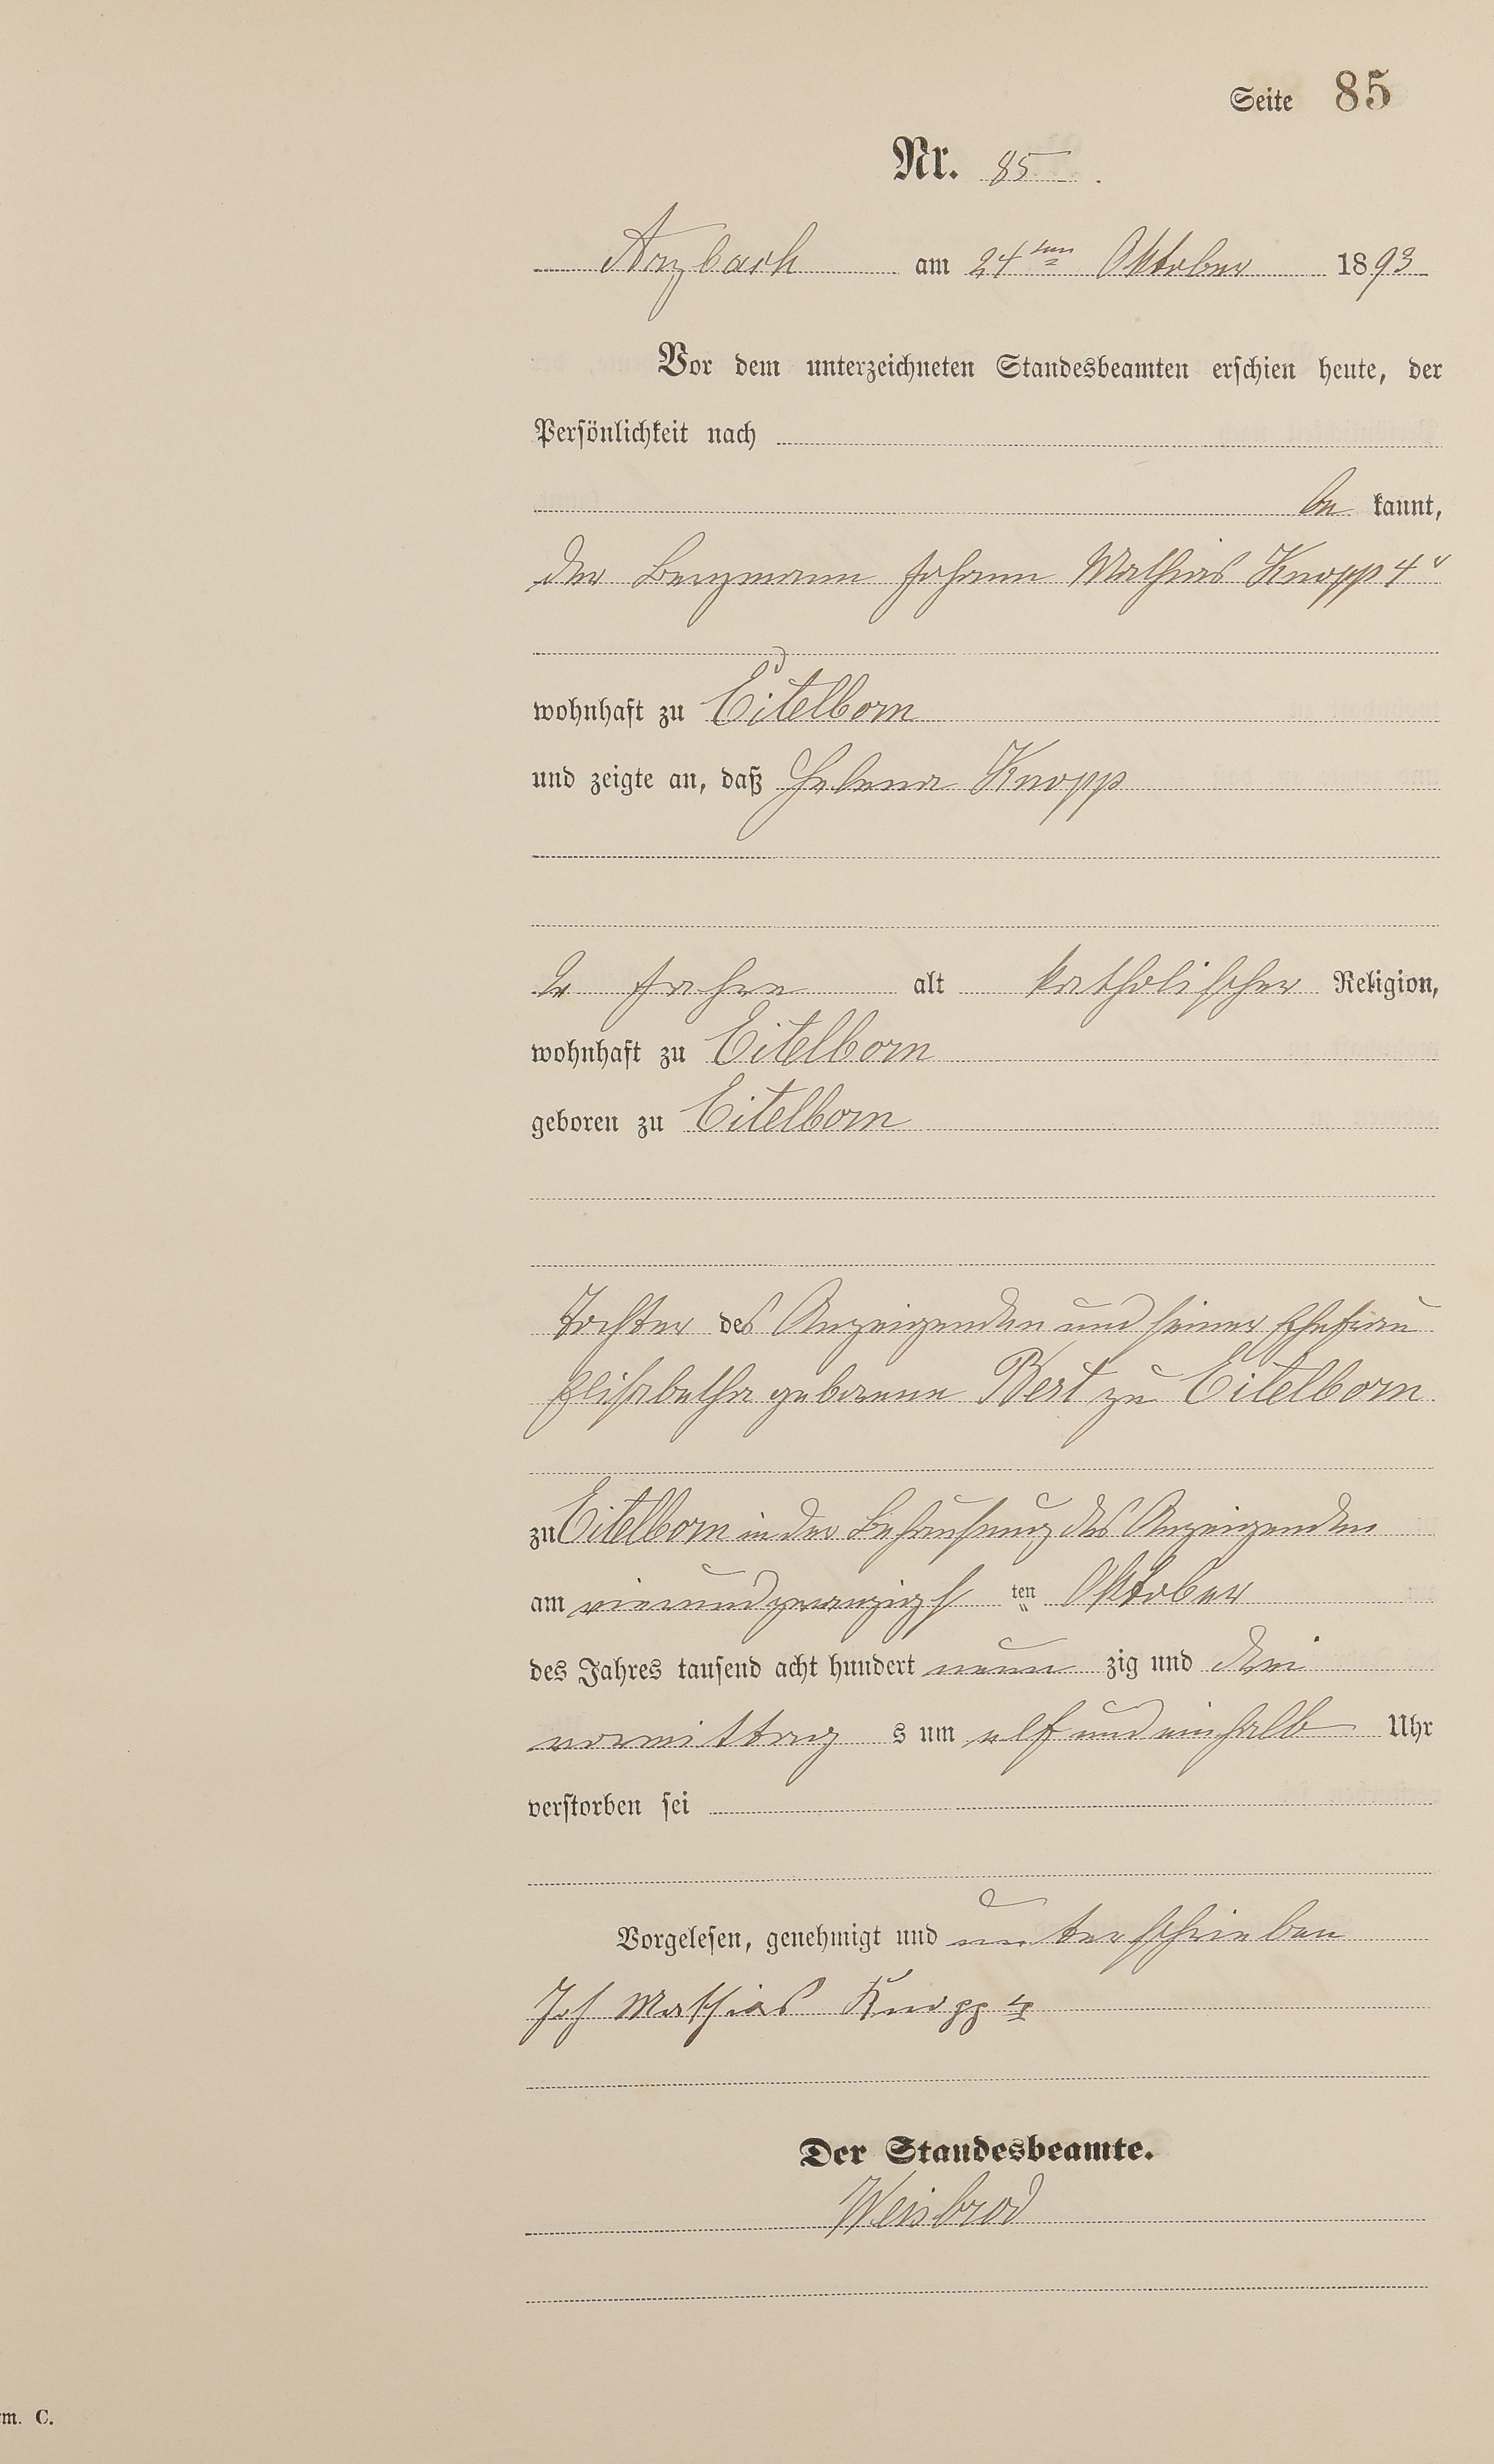 Seite 85
Nr. 85.
Arzbach am 24ten Oktober 1893
Vor dem unterzeichneten Standesbeamten erschien heute, der
Persönlichkeit nach
be kannt,
der Bergmann Johann Mathias Knopp 4r
wohnhaft zu Eitelborn
und zeigte an, daß Helena Knopp
Jahre alt katholischer Religion,
wohnhaft zu Eitelborn
geboren zu Eitelborn
Tochter des Anzeigenden und seiner Ehefrau
Elisabetha geborene Best zu Eitelborn
zu Eitelborn in der Behausung des Anzeigenden
am vierundzwanzigs ten Oktober
des Jahres tausend acht hundert neun zig und drei
vormittag s um elf und einhalb Uhr
verstorben sei
Vorgelesen, genehmigt und unterschrieben
Joh Mathias Knopp 4
Der Standesbeamte.
Weisbrod
rm. C.